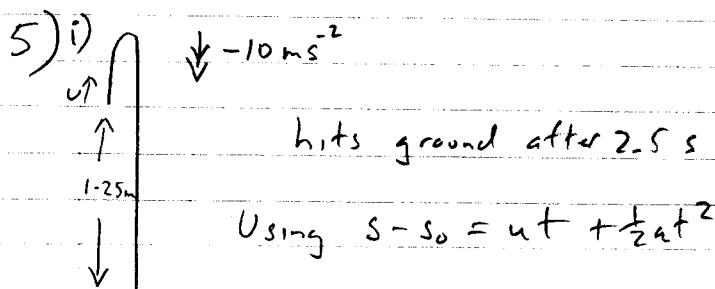 5) i)
-10 ms⁻²
u↑
hits ground after 2.5 s
1.25m
Using s - s₀ = ut + ½at²